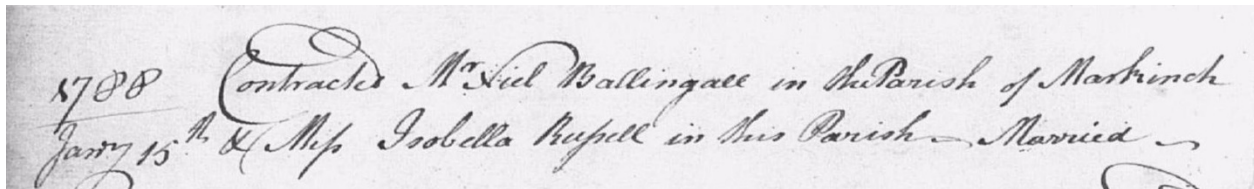 1788 Contracted Mr Niel Ballingall in the Parish of Markinch
Janry 15th & Miss Isobella Russell in this Parish - Married -